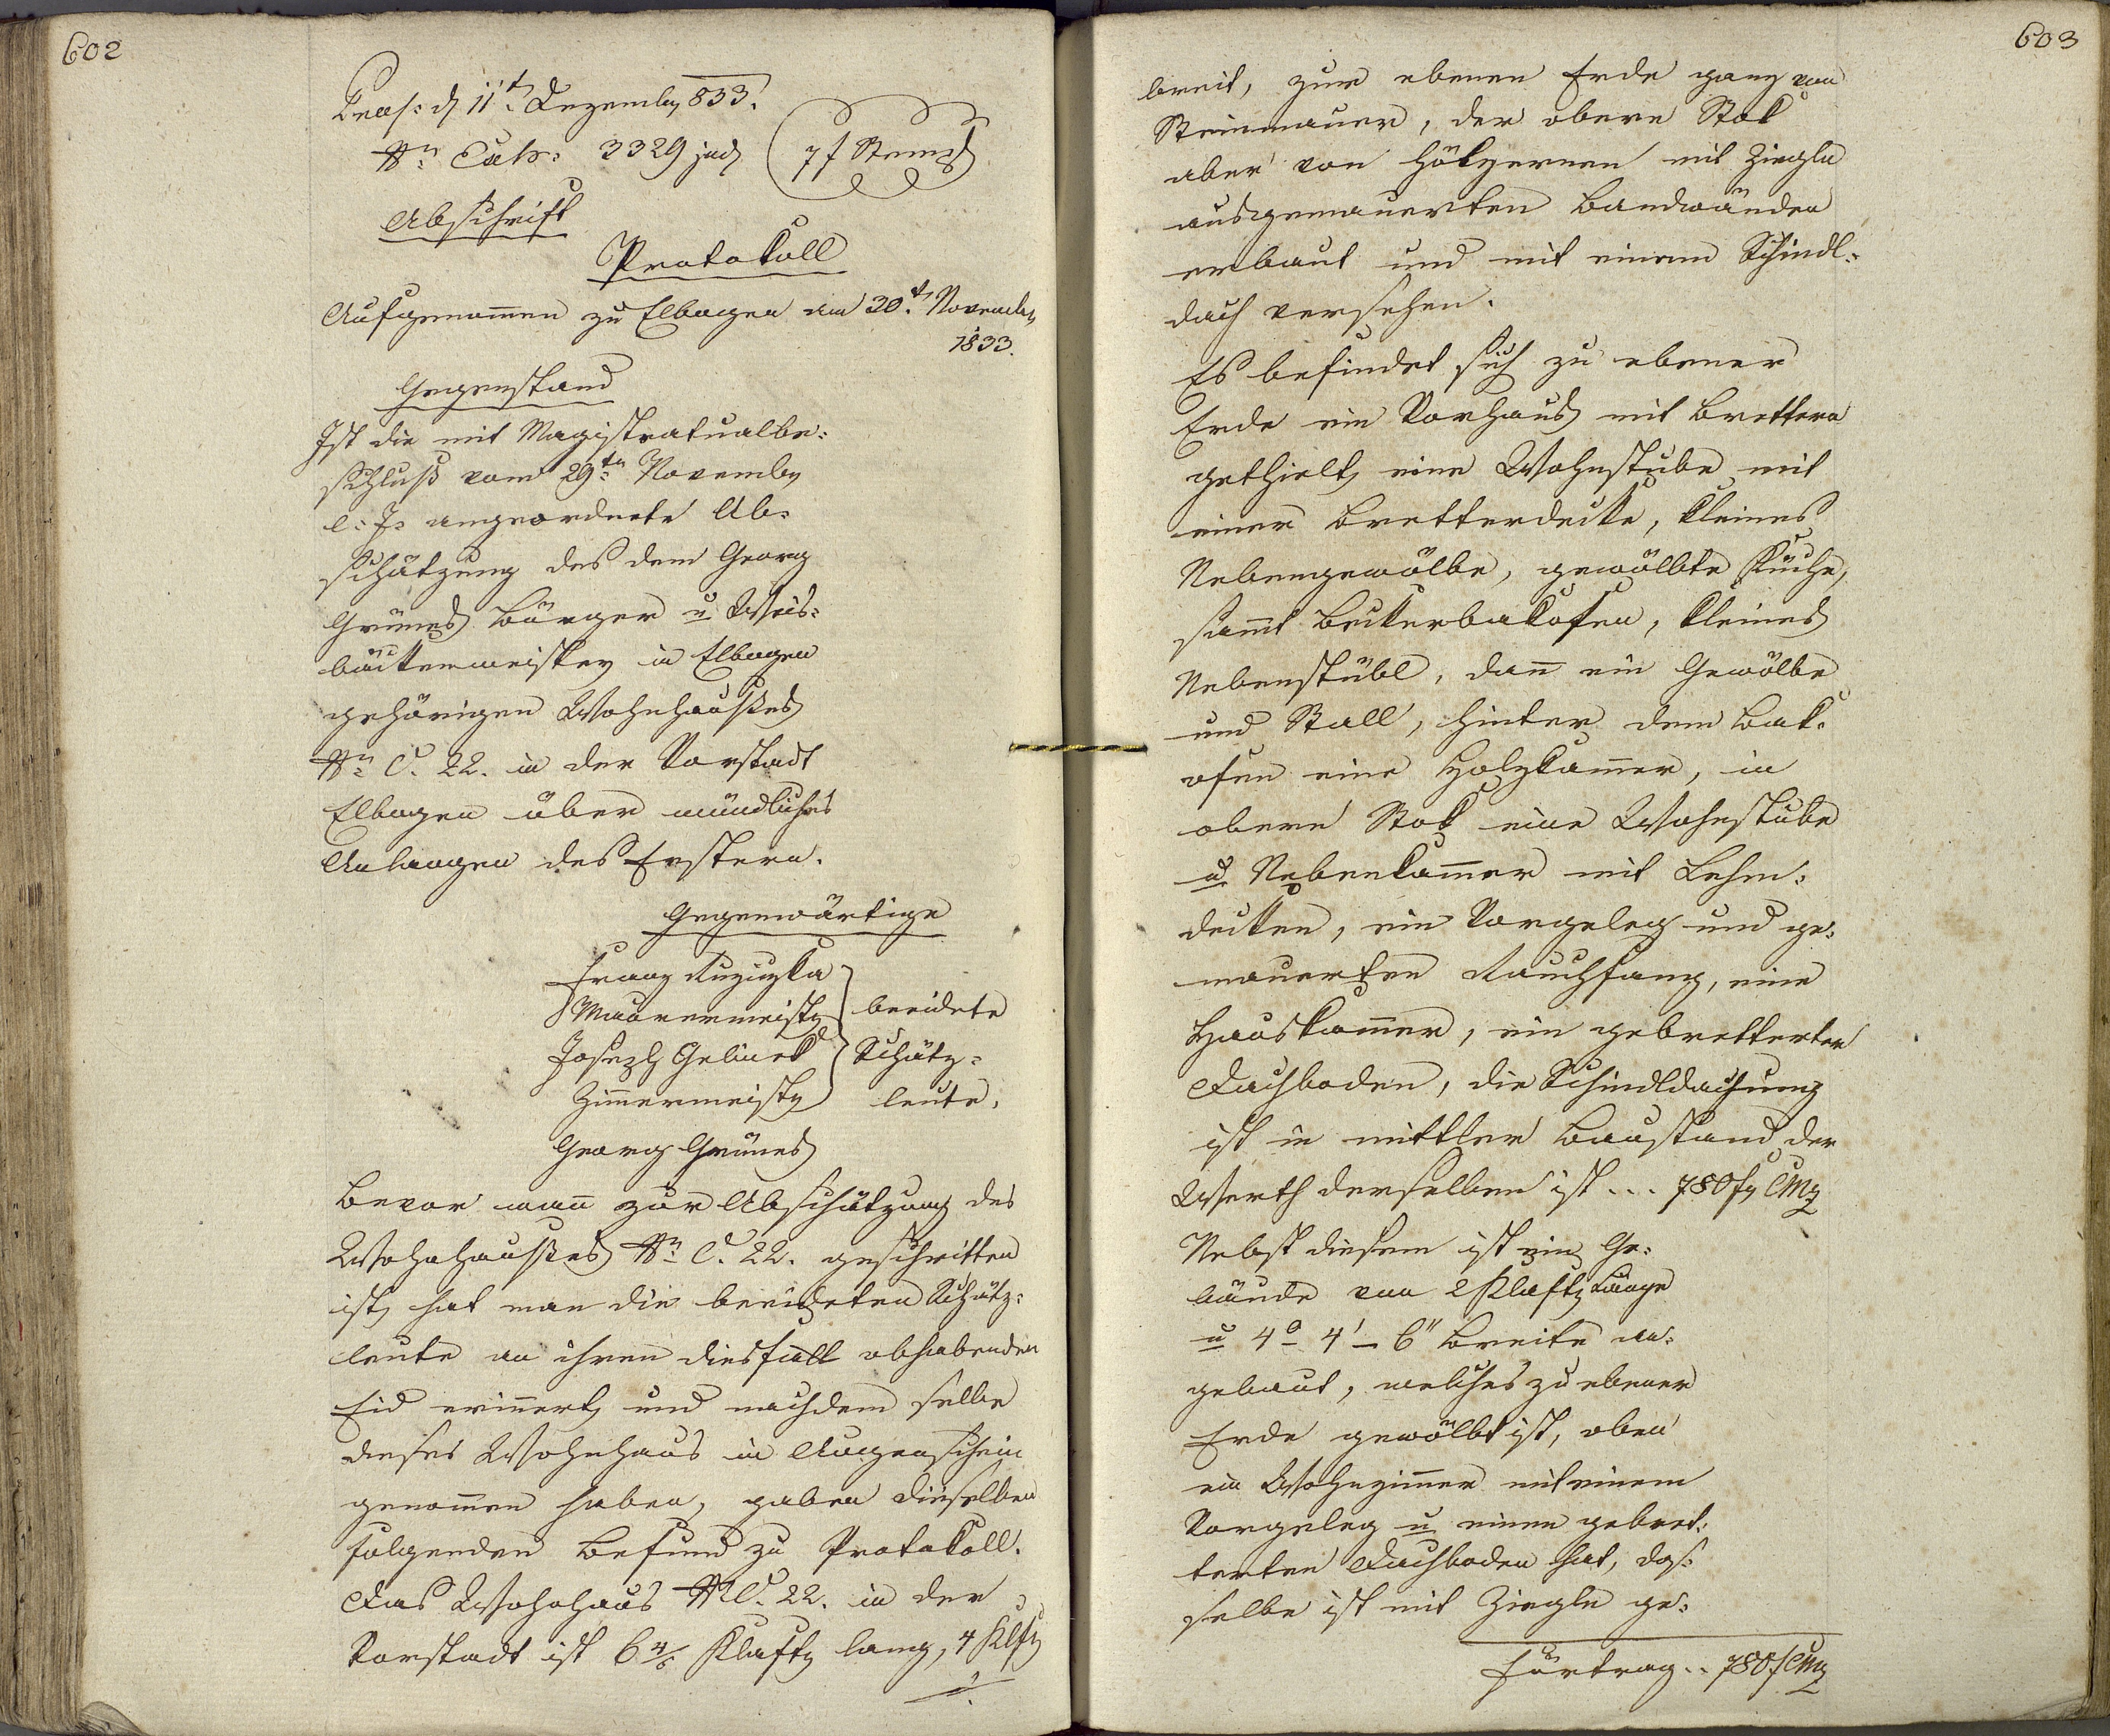 602
Praes: d 11t Dezember 833.
Nro Exh: 3329 jud
7 f Stempl
Abschrift
Protokoll
Aufgenom̄en zu Elbogen am 30t. November
1833.
Gegenstand
Ist die mit Magistratualbe:
schluß vom 29tn November
l: J: angeordnete Ab:
schätzung des dem Georg
Grünes Bürger u Weis:
bäckermeister in Elbogen
gehörigen Wohnhaußes
Nro C. 22. in der Vorstadt
Elbogen über mündliches
Anlangen des Erstern.
Gegenwärtige
Franz
Maurermeister
beeidete
Joseph Gelinek
Schätz:
Zim̄ermeister
leute.
Georg Grünes
Bevor man̄ zur Abschätzung des
Wohnhaußes Nro C. 22. geschritten
ist, hat man die beeideten Schätz:
leute an ihren diesfall obhabenden
Eid erin̄ert, und nachdem selbe
dieses Wohnhaus in Augenschein
genom̄en haben, gaben dieselben
folgenden Befund zu Protokoll.
Das Wohnhaus NC. 22. in der
Vorstadt ist 6 4/6 Klafter lang, 4 Klft
./.
603
breit, zur ebenen Erde ganz von
Steinmauer, der obere Stok
aber von hölzernen mit Ziegln
ausgemauerten Bandwänden
erbaut und mit einem Schindl:
dach versehen.
Es befindet sich zu ebener
Erde ein Vorhaus mit Brettern
gethielt, eine Wohnstube mit
einer Bretterdecke, kleines
Nebengewölbe, gewölbte Küche,
sam̄t Beckerbakofen, kleines
Nebenstübl, dan̄ ein Gewölbe
und Stall, hinter dem Bak:
ofen eine Holzkam̄er, in
obern Stok eine Wohnstube
u Nebenkam̄er mit Lehm:
decken, ein Vorgeleg und ge:
mauerten Rauchfang, eine
Hauskam̄er, ein gebretterter
Dachboden, die Schindldachung
ist in mittler Baustand, der
Werth derselben ist ... 780 f CMz
Nebst diesem ist ein Ge:
bäude von 2 Klafter Länge
u 4° 4' – 6" Breite an:
gebaut, welches zu ebener
Erde gewölbt ist, oben
ein Wohnzim̄er mit einem
Vorgeleg u einen gebret:
terten Dachboden hat, das:
selbe ist mit Ziegln ge:
Fürtrag .. 780 f CMz